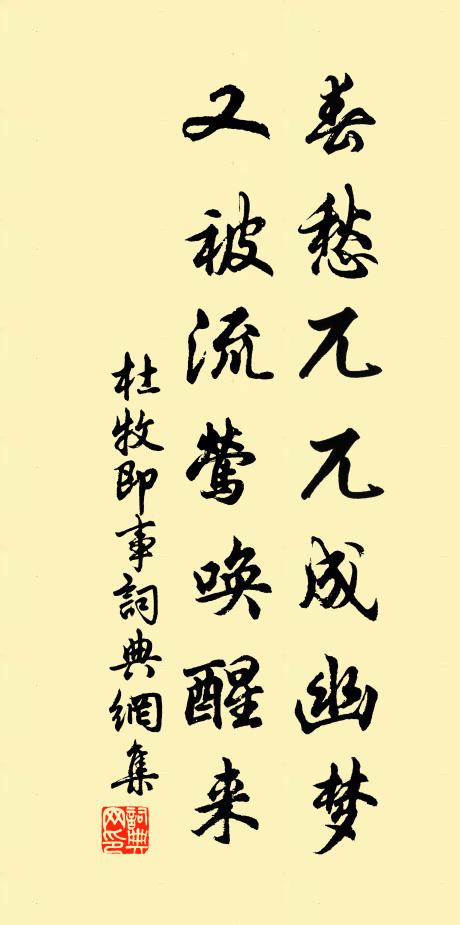 春愁兀兀成幽梦
又被流莺唤醒来
杜牧即事詞典網集
詞典网印